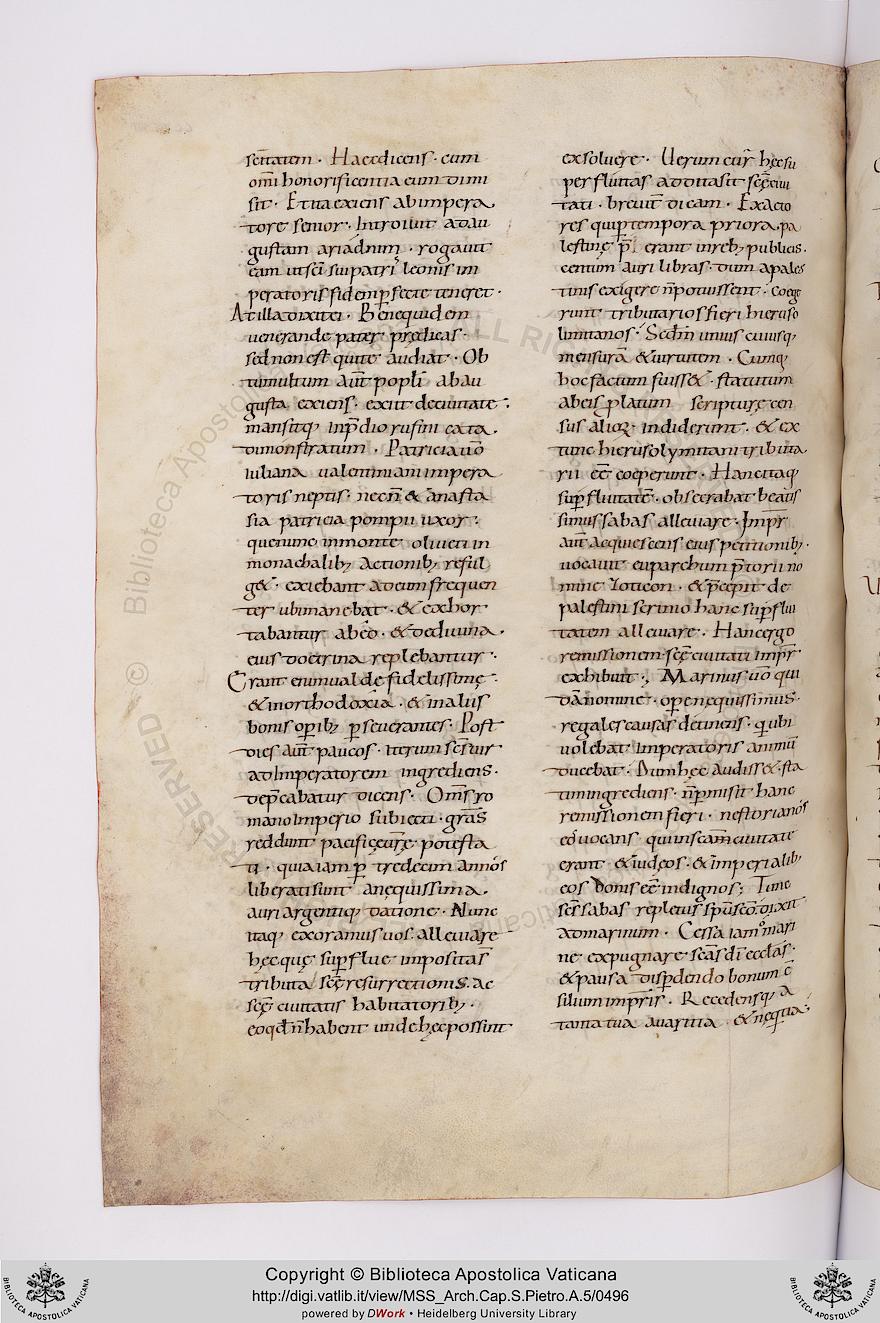 sentatem. Haec dicens. cum
om̄i honorificentia eum dimi
sit. Et ita exiens ab impera
tore senior. Introivit ad au
gustam ariadnam. rogavit
eam ut sc̄i sui patris leonis im
peratoris fidem ꝑfecte teneret.
At illa dixit ei. Bene quidem
venerande pater. predicas.
sed non est qui te audiat. Ob
tumultum aūt popli ab au
gusta exiens. exiit de civitate.
mansitq; in p̄dio rufini cata
dimonstratum. Patricia ū̄o
iuliana valentiniani impera
toris neptis. necn̄ & anasta
sia patricia pompii uxor.
que nunc in monte oliveti in
monachalib; actionib; reful
g&. exiebant ad eum frequen
ter ubi manebat. & exhor
tabantur ab eo. & de divina.
eius doctrina replebantur.
Erant enim valde fidelissimę.
& in orthodoxia. & in aliis
bonis oꝑib; ꝑseverantes. Post
dies aūt paucos. iterum senior
ad Imperatorem ingrediens.
dep̄cabatur dicens. Om̄s ro
mano Imperio subiecti. grās
reddunt pacificę vr̄ę potesta
ti. quia iam ꝑ tredecim annos
liberati sunt a nequissima.
auri argentiq; datione. Nunc
itaq; exoramus vos. alleviare
hęc que suꝑflue impositas
tributa sc̄ę resurrectionis. ac
sc̄ę civitatis habitatorib;.
eo qđ n̄ habent unde hęc possint
exsolvere. Uerum cur hęc su
perfluitas addita sit sc̄ę civi
tati. brevit̄ dicam. Exacto
res qui ꝑ tempora priora. pa
lestinę p̄. erant in reb; publicis.
centum auri libras. dum a pales
tinis exigere n̄ potuissent. coege
runt tributarios fieri hieroso
limitanos. Sedm̄ unius cuiusq;
mensurā & virtutem. Cumq;
hoc factum fuiss&. statutum
ab eis ꝑlatum scripturę cen
sus alioꝝ indiderunt. & ex
tunc hierusolymitani tributa
rii eē coeperunt. Hanc itaq;
suꝑfluitatē. obsecrabat beatis
simus sabas alleviare. Imp̄r
aūt acquiescens eius petitionib;.
vocavit euparchum p̄torii no
mine Zoticon. & p̄cepit de
palestini scrinio hanc suꝑflui
tatem alleviare. Hanc ergo
remissionem sc̄ę civitati imp̄r
exhibuit. Marinus ū̄o qui
dā nomine. oꝑe nequissimus.
regales causas detinens. q̇ ubi
volebat imperatoris animū
ducebat. Dum hęc audiss&. sta
tim ingrediens. n̄ ꝑmisit hanc
remissionem fieri. nestorianos
eos vocans. qui in sc̄am civitate
erant. & iudęos. & imperialib;
eos donis eē indignos; Tunc
sen̄ sabas repletus sp̄u sc̄o. dixit
ad marinum. Cessa iam o mari
ne expugnare sc̄as dī ecclās.
& pausa disꝑdendo bonum c̄
silium imp̄ris. Recedensq; a
tanta tua avaritia. & nequitia.
Copyright © Biblioteca Apostolica Vaticana
http://digi.vatlib.it/view/MSS_Arch.Cap.S.Pietro.A.5/0496
powered by DWork • Heidelberg University Library